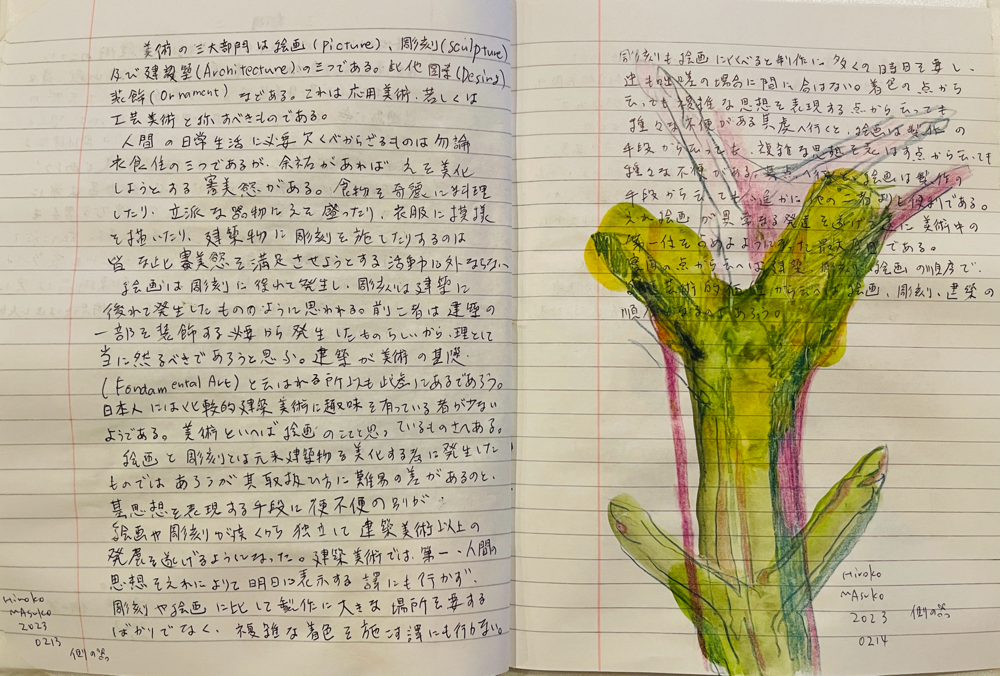 美術の三大部門は絵画(picture)、彫刻(sculpture)
及び建築(Architecture)の三つである。此他図案(Desing)
装飾(Ornament)などである。これは応用美術、若しくは
工芸美術と称すべきものである。
人間の日常生活に必要欠くべからざるものは勿論
衣食住の三つであるが、余裕があればえを美化
しようとする審美慾がある。食物を奇麗に料理
したり、立派な器物にえを盛ったり、衣服に模様
を描いたり、建築物に彫刻を施したりするのは
皆な此審美慾を満足させようとする活動に外ならない
絵画は彫刻に後れて発生し、彫刻は建築に
後れて発生したもののように思われる。前二者は建築の
一部を装飾する必要から発生したものらしいから、理として
当に然るべきであろうと思ふ。建築が美術の基礎
(Fondamental Art)と云はれる所以も此處にあるであろう。
日本人には比較的建築美術に趣味を有っている者が少ない
ようである。美術といへば絵画のことと思っているものさへある。
絵画と彫刻とは元来建築物を美化する為に発生した
ものではあろうが其取扱ひ方に難易の差があるのと、
其思想を表現する手段に便不便の別が
絵画や彫刻が疾くから独立して建築美術以上の
発展を遂げるようになった。建築美術では、第一、人間の
思想をえれによりて明白に表示する譯にも行かず、
彫刻や絵画に比して製作に大きな場所を要する
ばかりでなく、複雑な着色を施こす譯にも行かない。
Hiroko
mAsuko
2023
0213
彫刻も絵画にくらべると制作に多くの時日を要し、
の場合に間に合はない。着色の点から
云っても複雑な思想を表現する点から云っても
種々な不便がある其處へ行くと、絵画は製作の
手段から云っても、複雑な思想を表はす点から云っても
種々な不便がある 絵画は製作の
手段から云っても 遥かに他の二者より便利である。
え丈絵画が異常なる発達を遂げ に美術中の
第一位を占めるようになった である。
の点から云へば建築、彫刻、絵画の順序で、
芸術的 から云へば絵画、彫刻、建築の
順
Hiroko
mAsuko
2023
0214